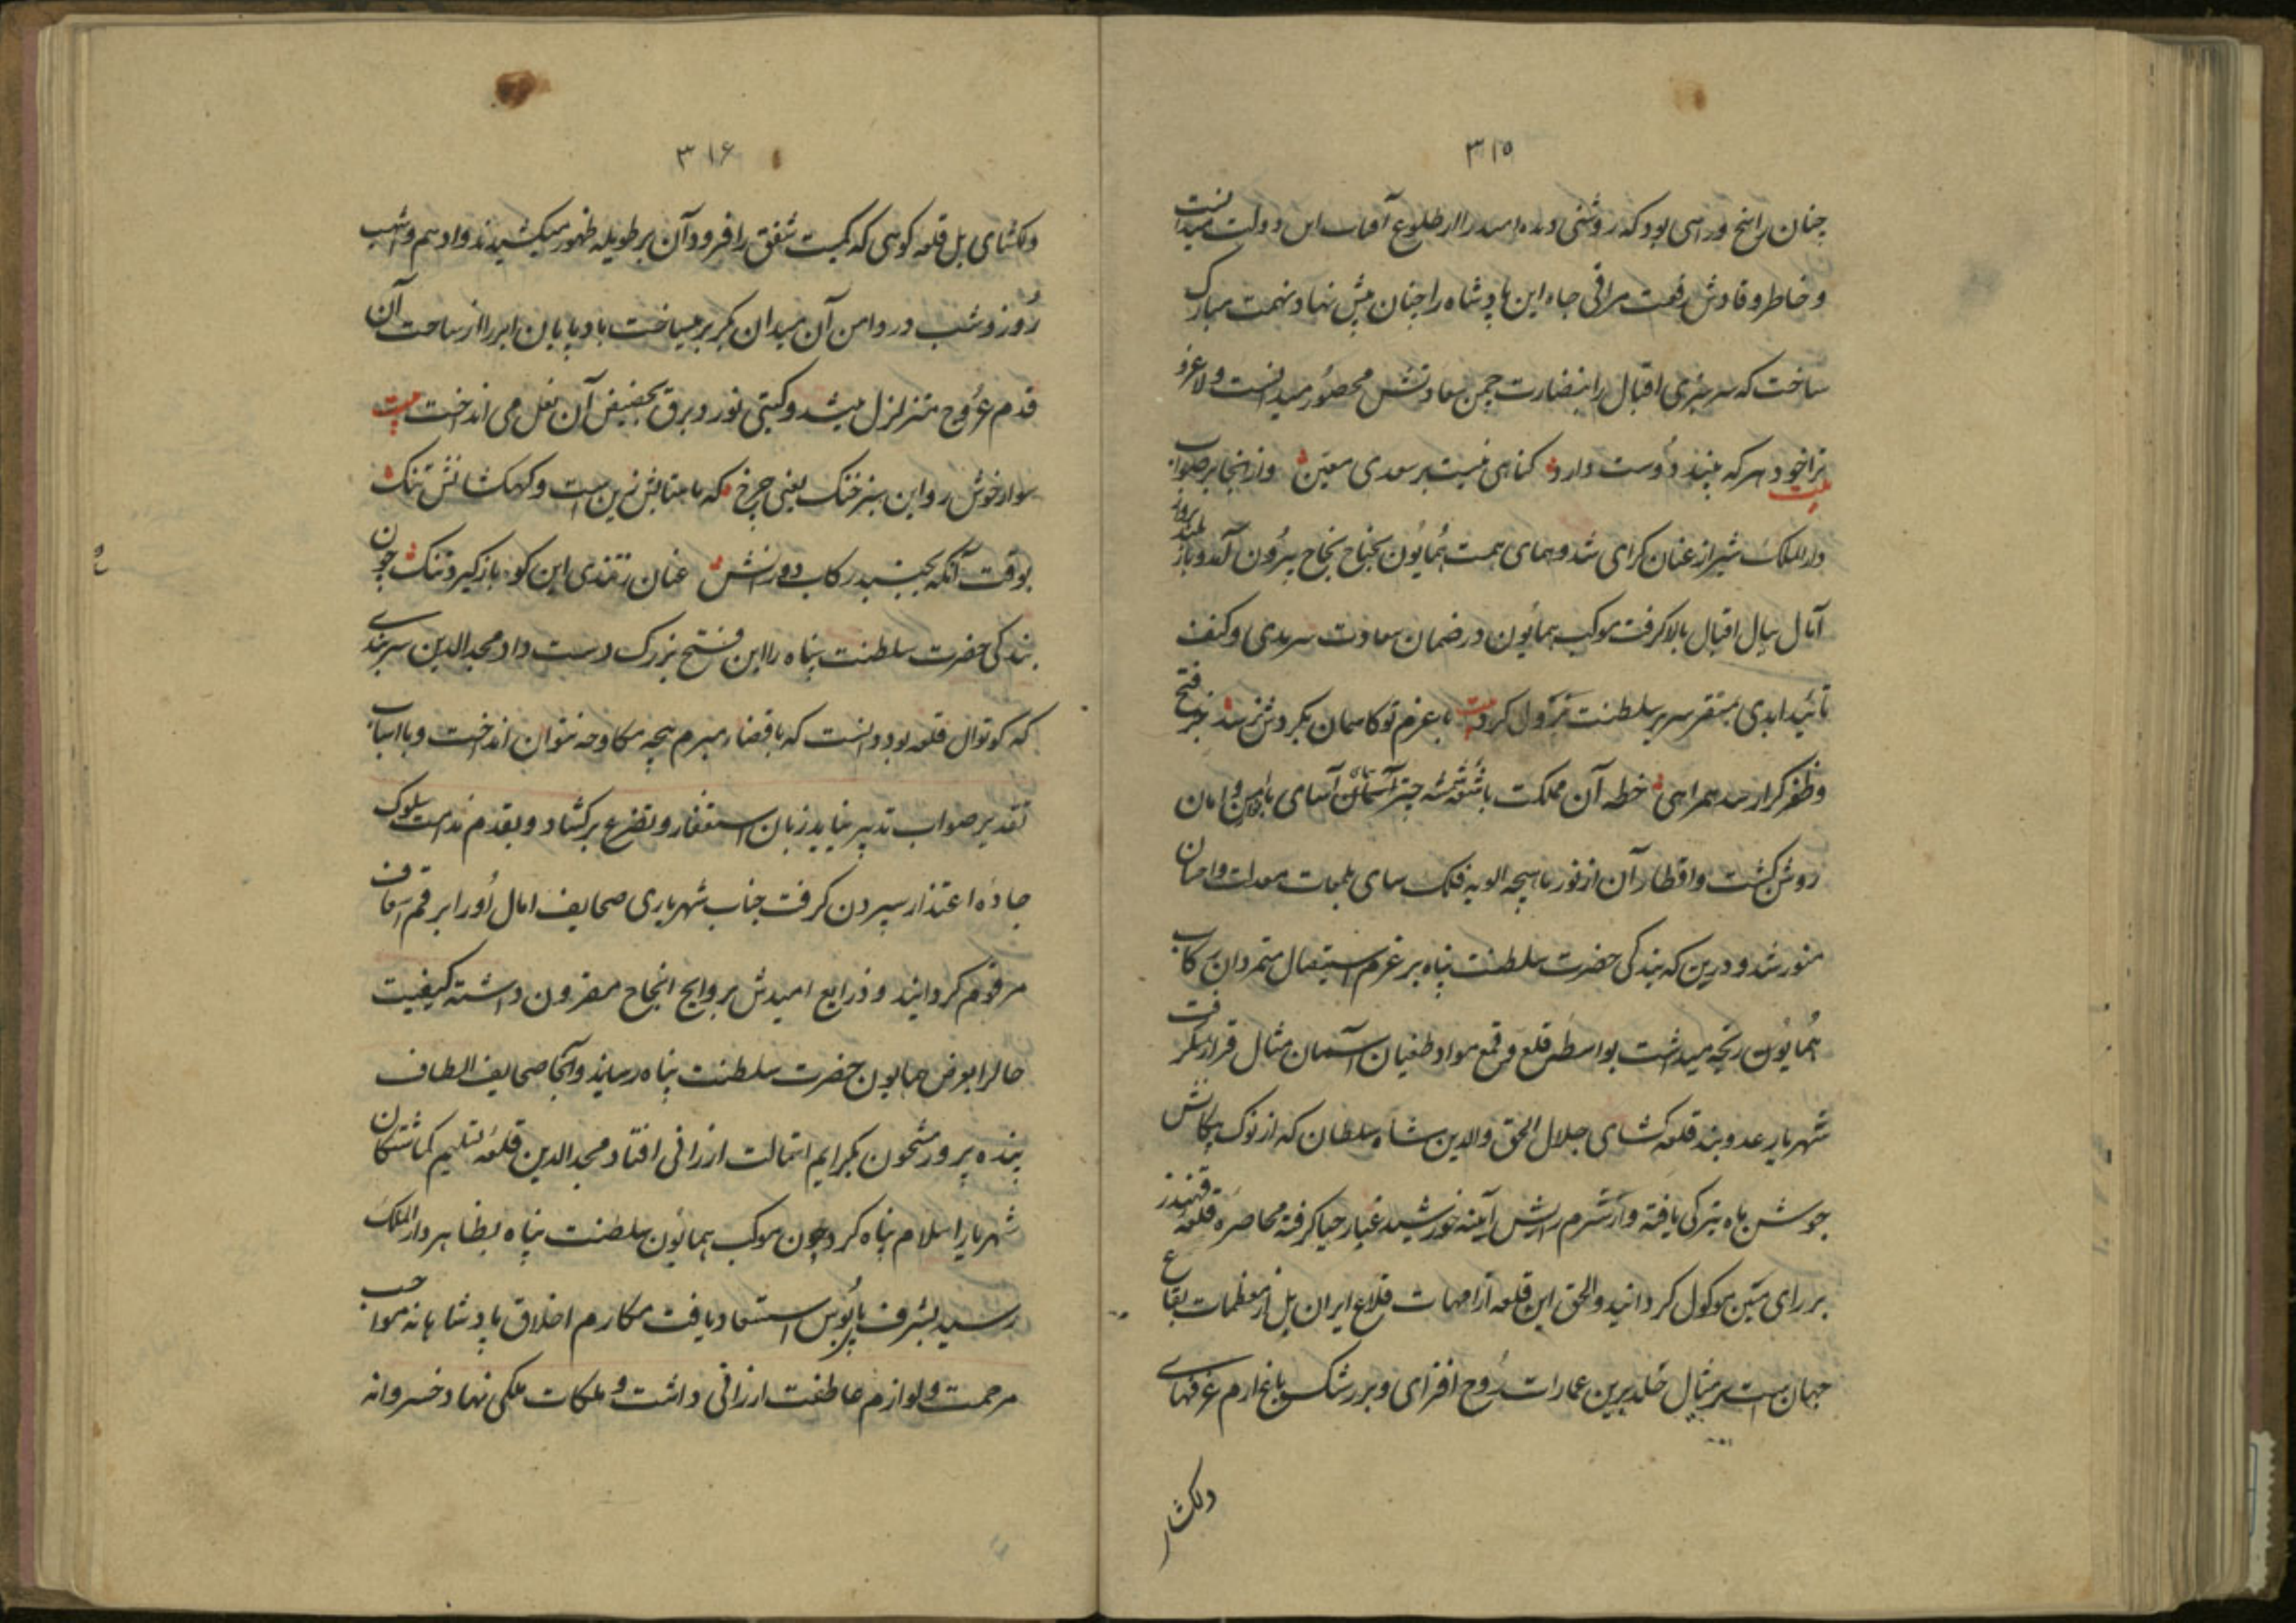 ۳۱۵
چنان راسخ و راسی بود که روشنی دیده امید را از طلوع آفتاب این دولت میدانست
و خاطر وقادش رفعت مراقی جاه این پادشاه را چنان پیش نهاد نهمت مبارک
ساخت که سرسبزی اقبال را بنضارت چمن سعادتش محصور میدانست ولاغرو
بیت
ترا خود هر که بیند دوست دارد گناهی نیست بر سعدی معین و از انجا بر صواب
دار الملک شیراز عنان گرای شد و همای همت همایون بجناح نجاح بیرون آمد و باز بلند پرواز
آمال ببال اقبال بالا گرفت موکب همایون در ضمان سعادت سرمدی و کنف
تائید ابدی بمستقر سریر سلطنت نزول کرد بیت با عزم تو کاسمان بگردش نرسد جز فتح
و ظفر کرا رسد همراهی خطه آن مملکت باشعه شمسه چتر آسمان آسای بامن و امان
روشن گشت و اقطار آن از نور ماهیچه الویه فلک سای بلمعات معدلت و احسان
منور شد و درین که بندگی حضرت سلطنت پناه بر عزم استیصال متمردان رکاب
همایون رنجه میداشت بواسطه قلع و قمع مواد طغیان آسمان مثال قرار نگرفت
شهریار عدوبند قلعه گشای جلال الحق والدین شاه سلطان که از نوک پیکانش
جوشن ماه تیرگی یافته و از شرم رایش آیینه خورشید غبار حیا گرفته محاصره قلعه قهندز
بر رای متین موکول گردانید والحق این قلعه از امهات قلاع ایران بل از معظمات بقاع
جهان است بر مثال خلد برین عمارات روح افزای و بر رشک باغ ارم غرفهای
دلکشای
۳۱۶
دلکشای بل قلعه کوهی که کمیت شفق را فرود آن بر طویله ظهور میکشیدند و ادهم و اشهب
روز و شب در دامن آن میدان بکر بر میساخت بادپایان ابر را از ساحت آن
قدم عروج متزلزل میشد و گیتی نورد برق بحضیض آن نعل می انداخت بیت
سوار خوش رو این سبز خنگ یعنی چرخ که ماهتابش زین است و کهکشانش تنگ
بوقت آنکه بجنبد رکاب دورانش عنان ز تندی این کوه باز گیرد تنگ چون
بندگی حضرت سلطنت پناه را این فتح بزرگ دست داد مجد الدین سربندی
که کوتوال قلعه بود دانست که با قضاء مبرم پنجه مکاوحه نتوان انداخت و با اسباب
تقدیر صواب تدبیر نیاید زبان استغفار و تضرع برگشاد و بقدم ندامت سلوک
جاده اعتذار سپردن گرفت جناب شهریاری صحایف امال او را بر قم اسعاف
مرقوم گردانید و ذرایع امیدش بروایح انجاح مقرون داشته کیفیت
حال را بعرض همایون حضرت سلطنت پناه رسانید و آنجا صحایف الطاف
بنده پرور مشحون بکرایم استمالت ارزانی افتاد مجد الدین قلعه تسلیم گماشتگان
شهریار اسلام پناه کرد چون موکب همایون سلطنت پناه بظاهر دار الملک
رسید بشرف پایبوس استسعاد یافت مکارم اخلاق پادشاهانه مواجب
مرحمت و لوازم عاطفت ارزانی داشت و ملکات ملکی نهاد خسروانه